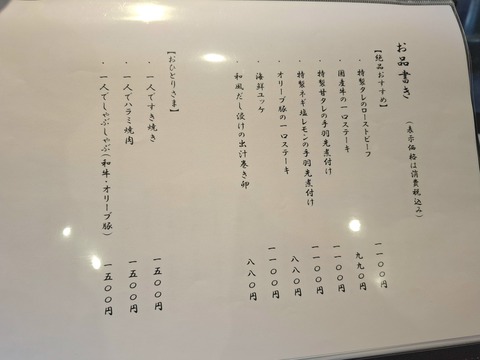 お品書き
(表示価格は消費税込み)
【絶品おすすめ】
・特製タレのローストビーフ 一一〇〇円
・国産牛の一口ステーキ 九九〇円
・特製タレの手羽先煮付け 一一〇〇円
・特製ネギ塩レモンの手羽先煮付け 一一〇〇円
・オリーブ豚の一口ステーキ 八八〇円
・海鮮ユッケ 一一〇〇円
・和風だし漬けの出汁巻き卵 八八〇円
【おひとりさま】
・一人ですき焼き 一五〇〇円
・一人でハラミ焼肉 一五〇〇円
・一人でしゃぶしゃぶ(和牛・オリーブ豚) 一五〇〇円